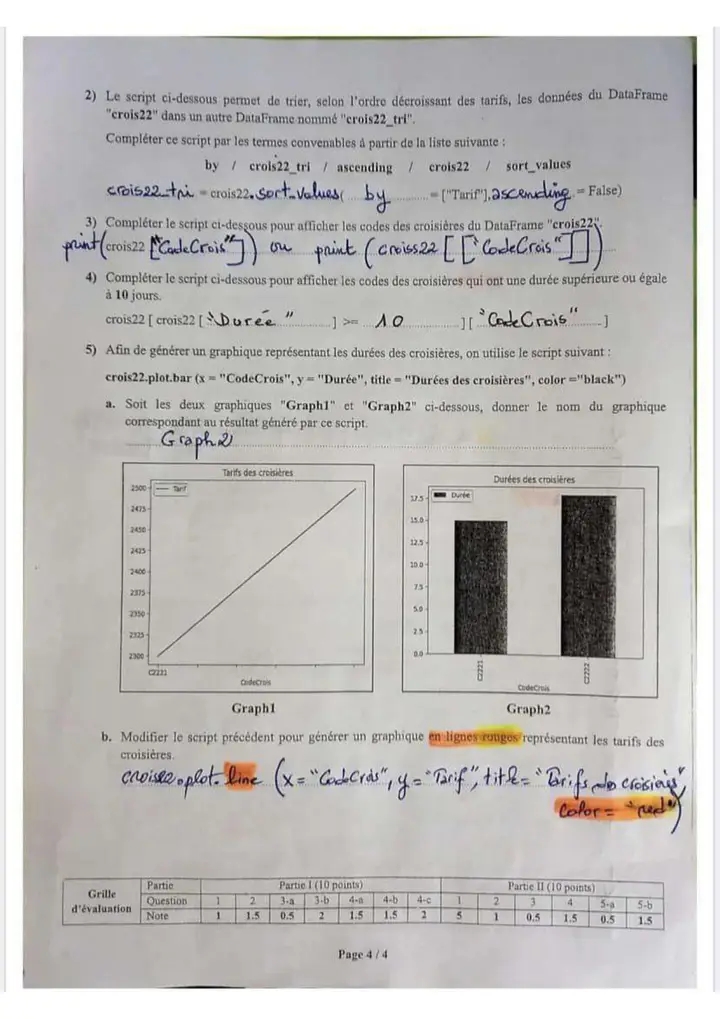 2) Le script ci-dessous permet de trier, selon l'ordre décroissant des tarifs, les données du DataFrame
"crois22" dans un autre DataFrame nommé "crois22_tri".
Compléter ce script par les termes convenables à partir de la liste suivante :
by / crois22_tri / ascending / crois22 / sort_values
crois22_tri = crois22.sort_values( by = ["Tarif"], ascending = False)
3) Compléter le script ci-dessous pour afficher les codes des croisières du DataFrame "crois22".
print(crois22 ["CodeCrois"]) ou print (croiss22 [["CodeCrois"]])
4) Compléter le script ci-dessous pour afficher les codes des croisières qui ont une durée supérieure ou égale
à 10 jours.
crois22 [ crois22 [ "Durée" ] >= 10 ] [ "CodeCrois" ]
5) Afin de générer un graphique représentant les durées des croisières, on utilise le script suivant :
crois22.plot.bar (x = "CodeCrois", y = "Durée", title = "Durées des croisières", color ="black")
a. Soit les deux graphiques "Graph1" et "Graph2" ci-dessous, donner le nom du graphique
correspondant au résultat généré par ce script.
Graph2
Tarifs des croisières
Tarif
2500
2475
2450
2425
2400
2375
2350
2325
2300
C2221
CodeCrois
Graph1
Durées des croisières
Durée
17.5
15.0
12.5
10.0
7.5
5.0
2.5
0.0
C2221
C2222
CodeCrois
Graph2
b. Modifier le script précédent pour générer un graphique en lignes rouges représentant les tarifs des
croisières.
crois22.plot.line (x = "CodeCrois", y = "Tarif", title = "Tarifs des croisières",
color = "red")
Grille d'évaluation
Partie Partie I (10 points) Partie II (10 points)
Question 1 2 3-a 3-b 4-a 4-b 4-c 1 2 3 4 5-a 5-b
Note 1 1.5 0.5 2 1.5 1.5 2 5 1 0.5 1.5 0.5 1.5
Page 4 / 4